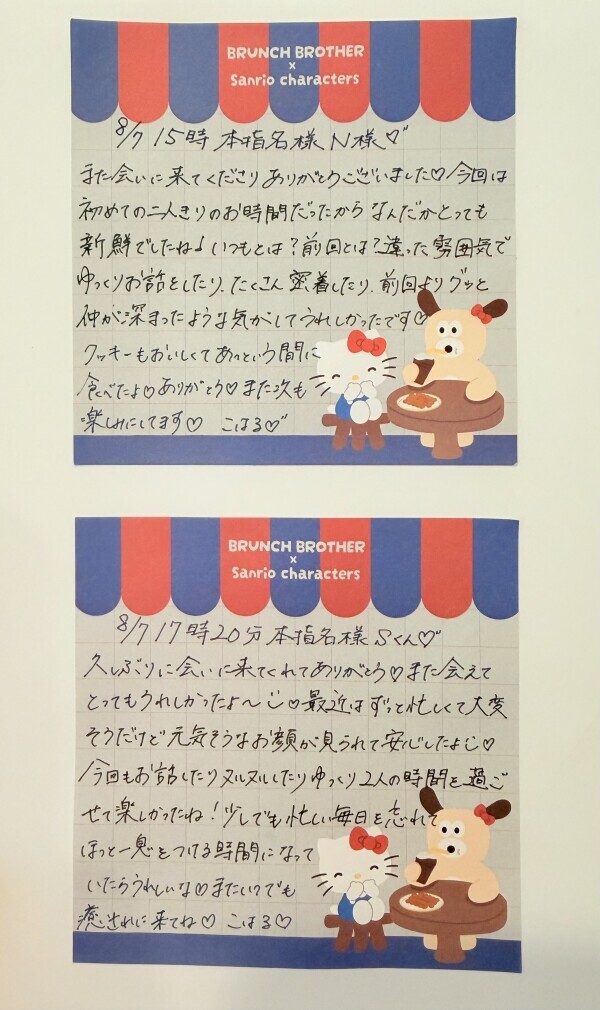 BRUNCH BROTHER
×
Sanrio characters
8/7 15時 本指名様 N様♡
また会いに来てくださりありがとうございました♡今回は
初めての二人きりのお時間だったからなんだかとっても
新鮮でしたね♩いつもとは?前回とは?違った雰囲気で
ゆっくりお話をしたり、たくさん密着したり、前回よりグッと
仲が深まったような気がしてうれしかったです♡
クッキーもおいしくてあっという間に
食べたよ♡ありがとう♡また次も
楽しみにしてます♡ こはる♡
BRUNCH BROTHER
×
Sanrio characters
8/7 17時20分 本指名様 Sくん♡
久しぶりに会いに来てくれてありがとう♡また会えて
とってもうれしかったよ〜♡最近はずっと忙しくて大変
そうだけど元気そうなお顔が見られて安心したよ♡
今回もお話したりヌルヌルしたりゆっくり2人の時間を過ご
せて楽しかったね!少しでも忙しい毎日を忘れて
ほっと一息をつける時間になって
いたらうれしいな♡またいつでも
癒されに来てね♡ こはる♡